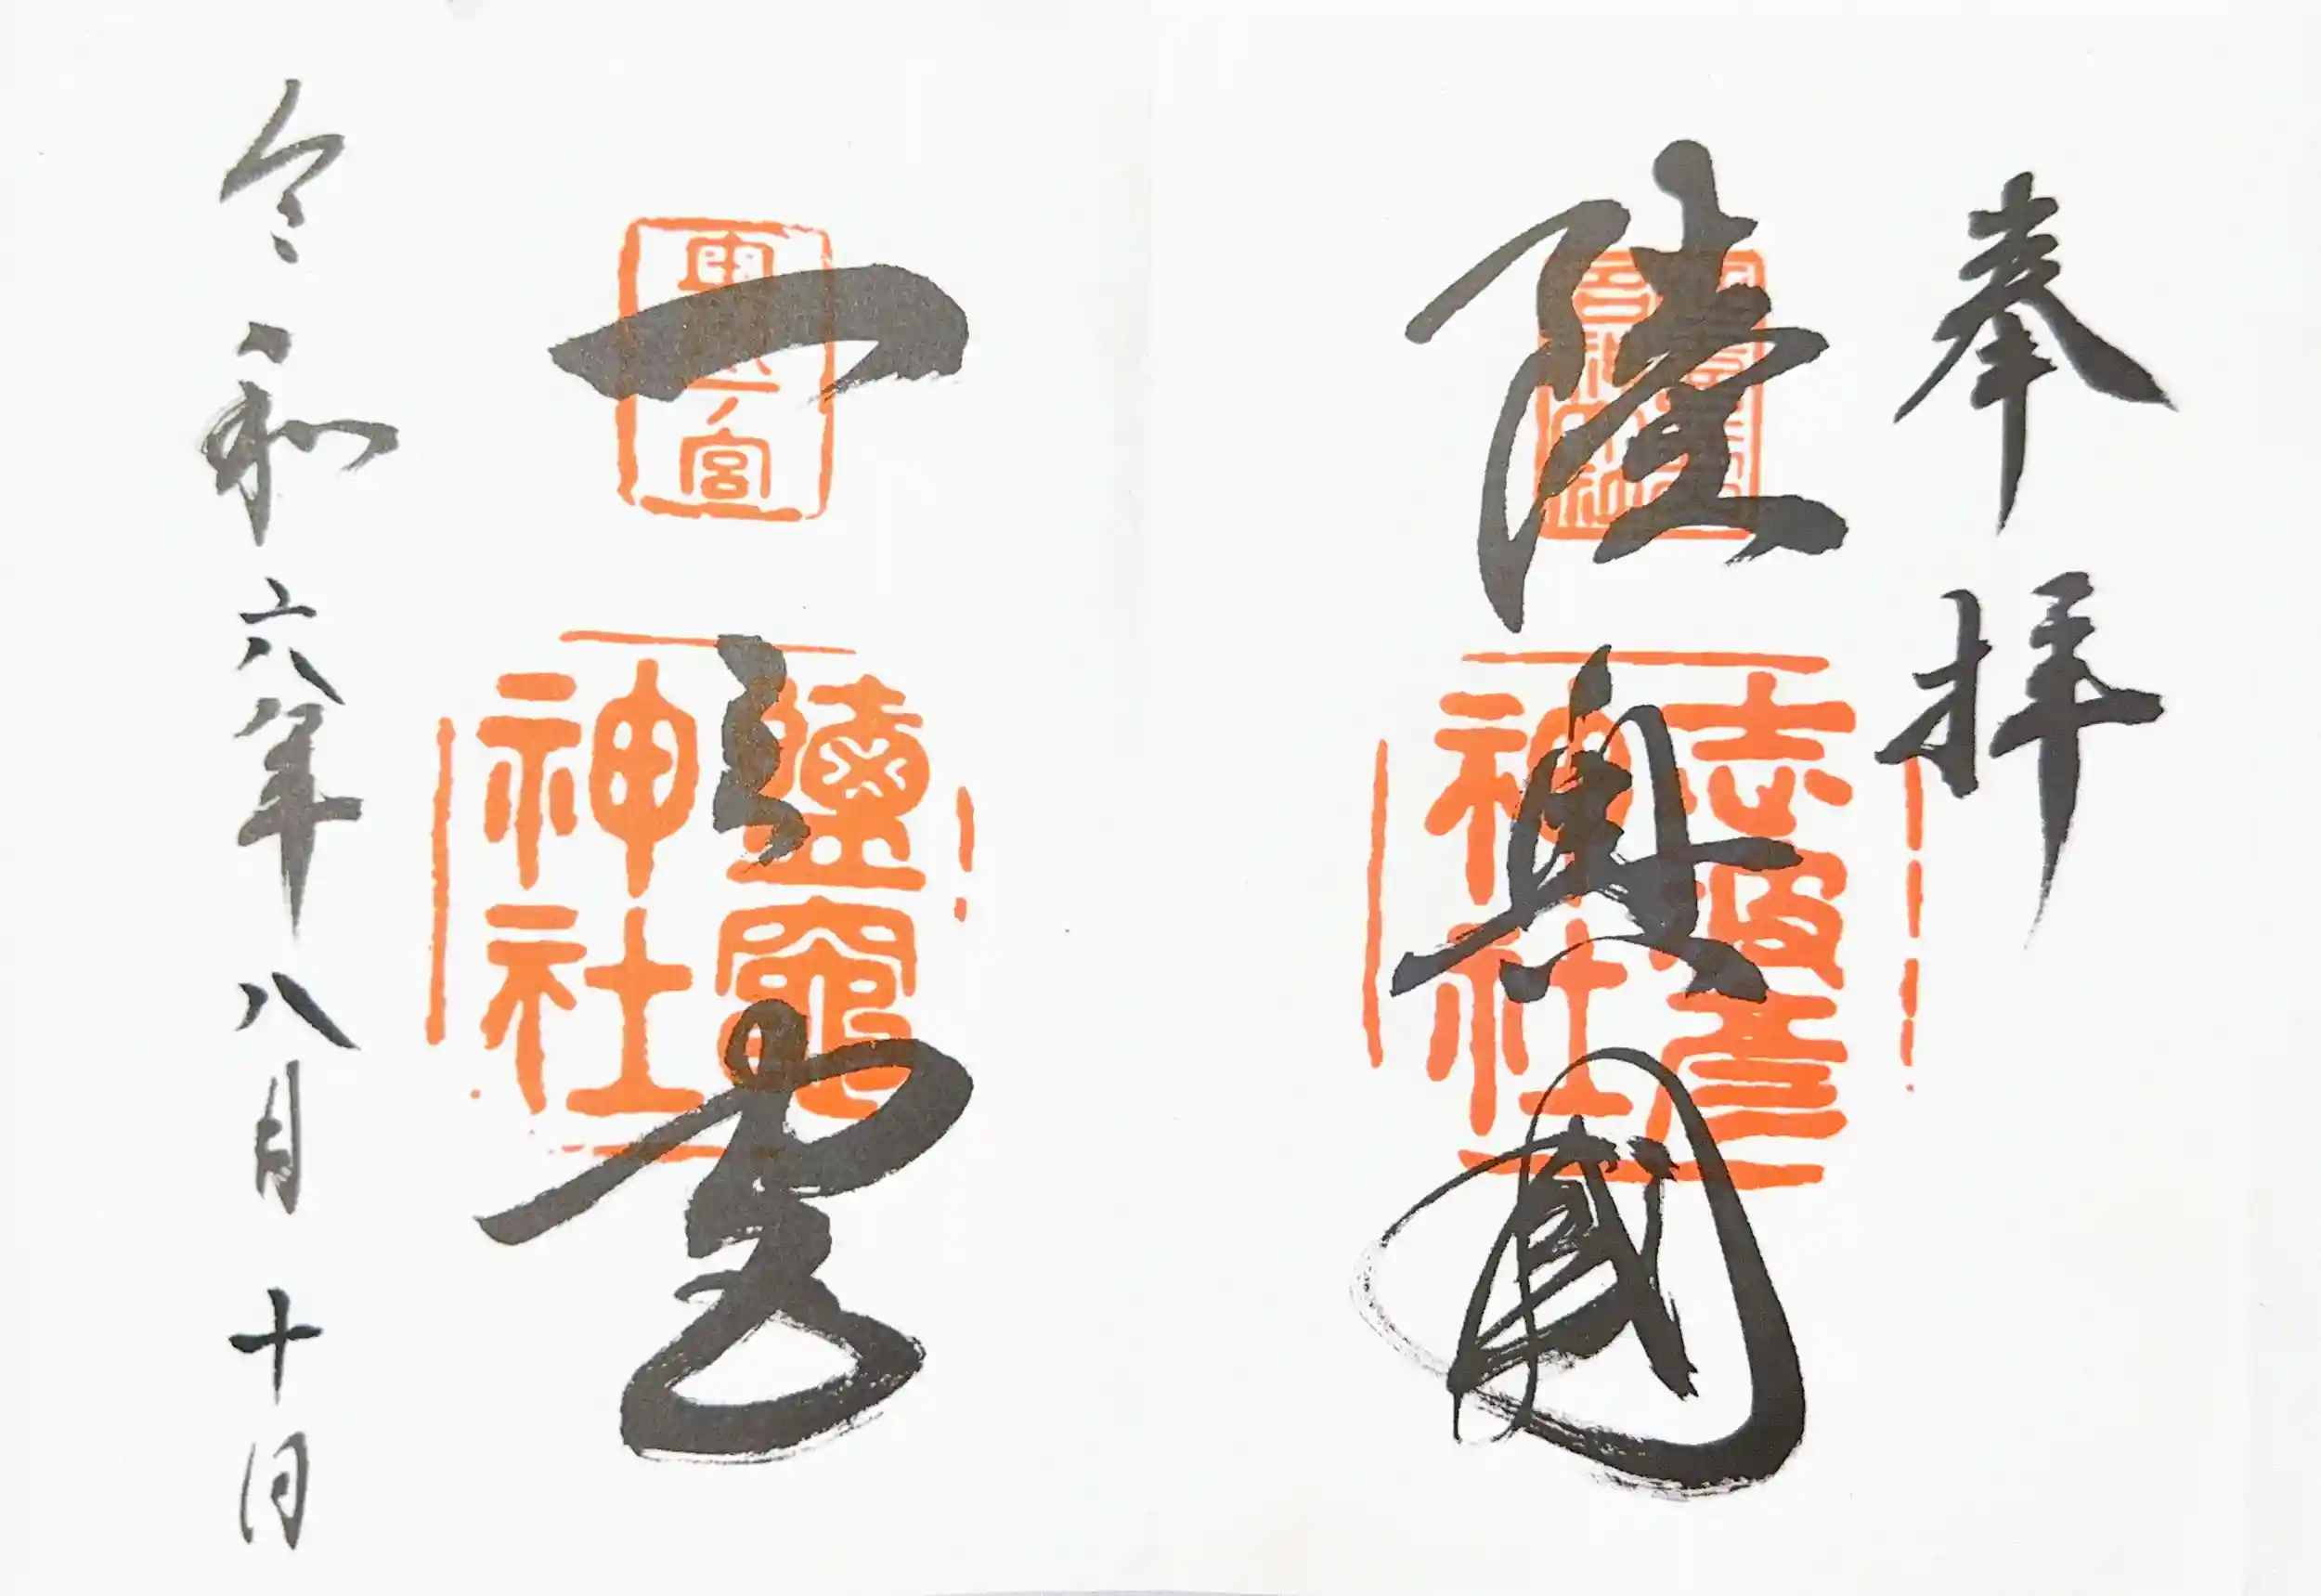 奉拝
陸奥國
志波彦
神社
一之宮
鹽竈
神社
令和六年八月十日